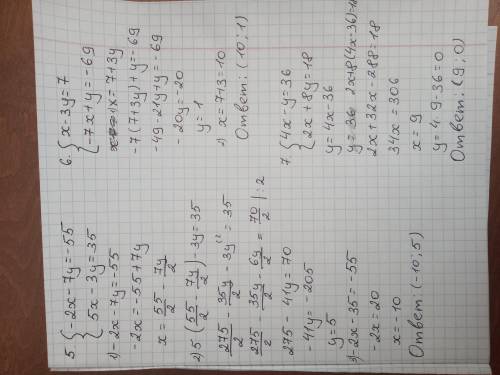 5. { -2x - 7y = -55
5x - 3y = 35
1) -2x - 7y = -55
-2x = -55 + 7y
x = 55/2 - 7y/2
2) 5 (55/2 - 7y/2) - 3y = 35
275/2 - 35y/2 - 3y = 35
275/2 - 35y/2 - 6y/2 = 70/2 | : 2
275 - 41y = 70
-41y = -205
y = 5
3) -2x - 35 = -55
-2x = 20
x = -10
Ответ (-10; 5)
6. { x - 3y = 7
-7x + y = -69
1) x = 7 + 3y
-7 (7 + 3y) + y = -69
-49 - 21y + y = -69
-20y = -20
y = 1
2) x = 7 + 3 = 10
Ответ: (10; 1)
7. { 4x - y = 36
2x + 8y = 18
y = 4x - 36
y = 36 2x + 8 (4x - 36) = 18
2x + 32x - 288 = 18
34x = 306
x = 9
y = 4 · 9 - 36 = 0
Ответ: (9; 0)